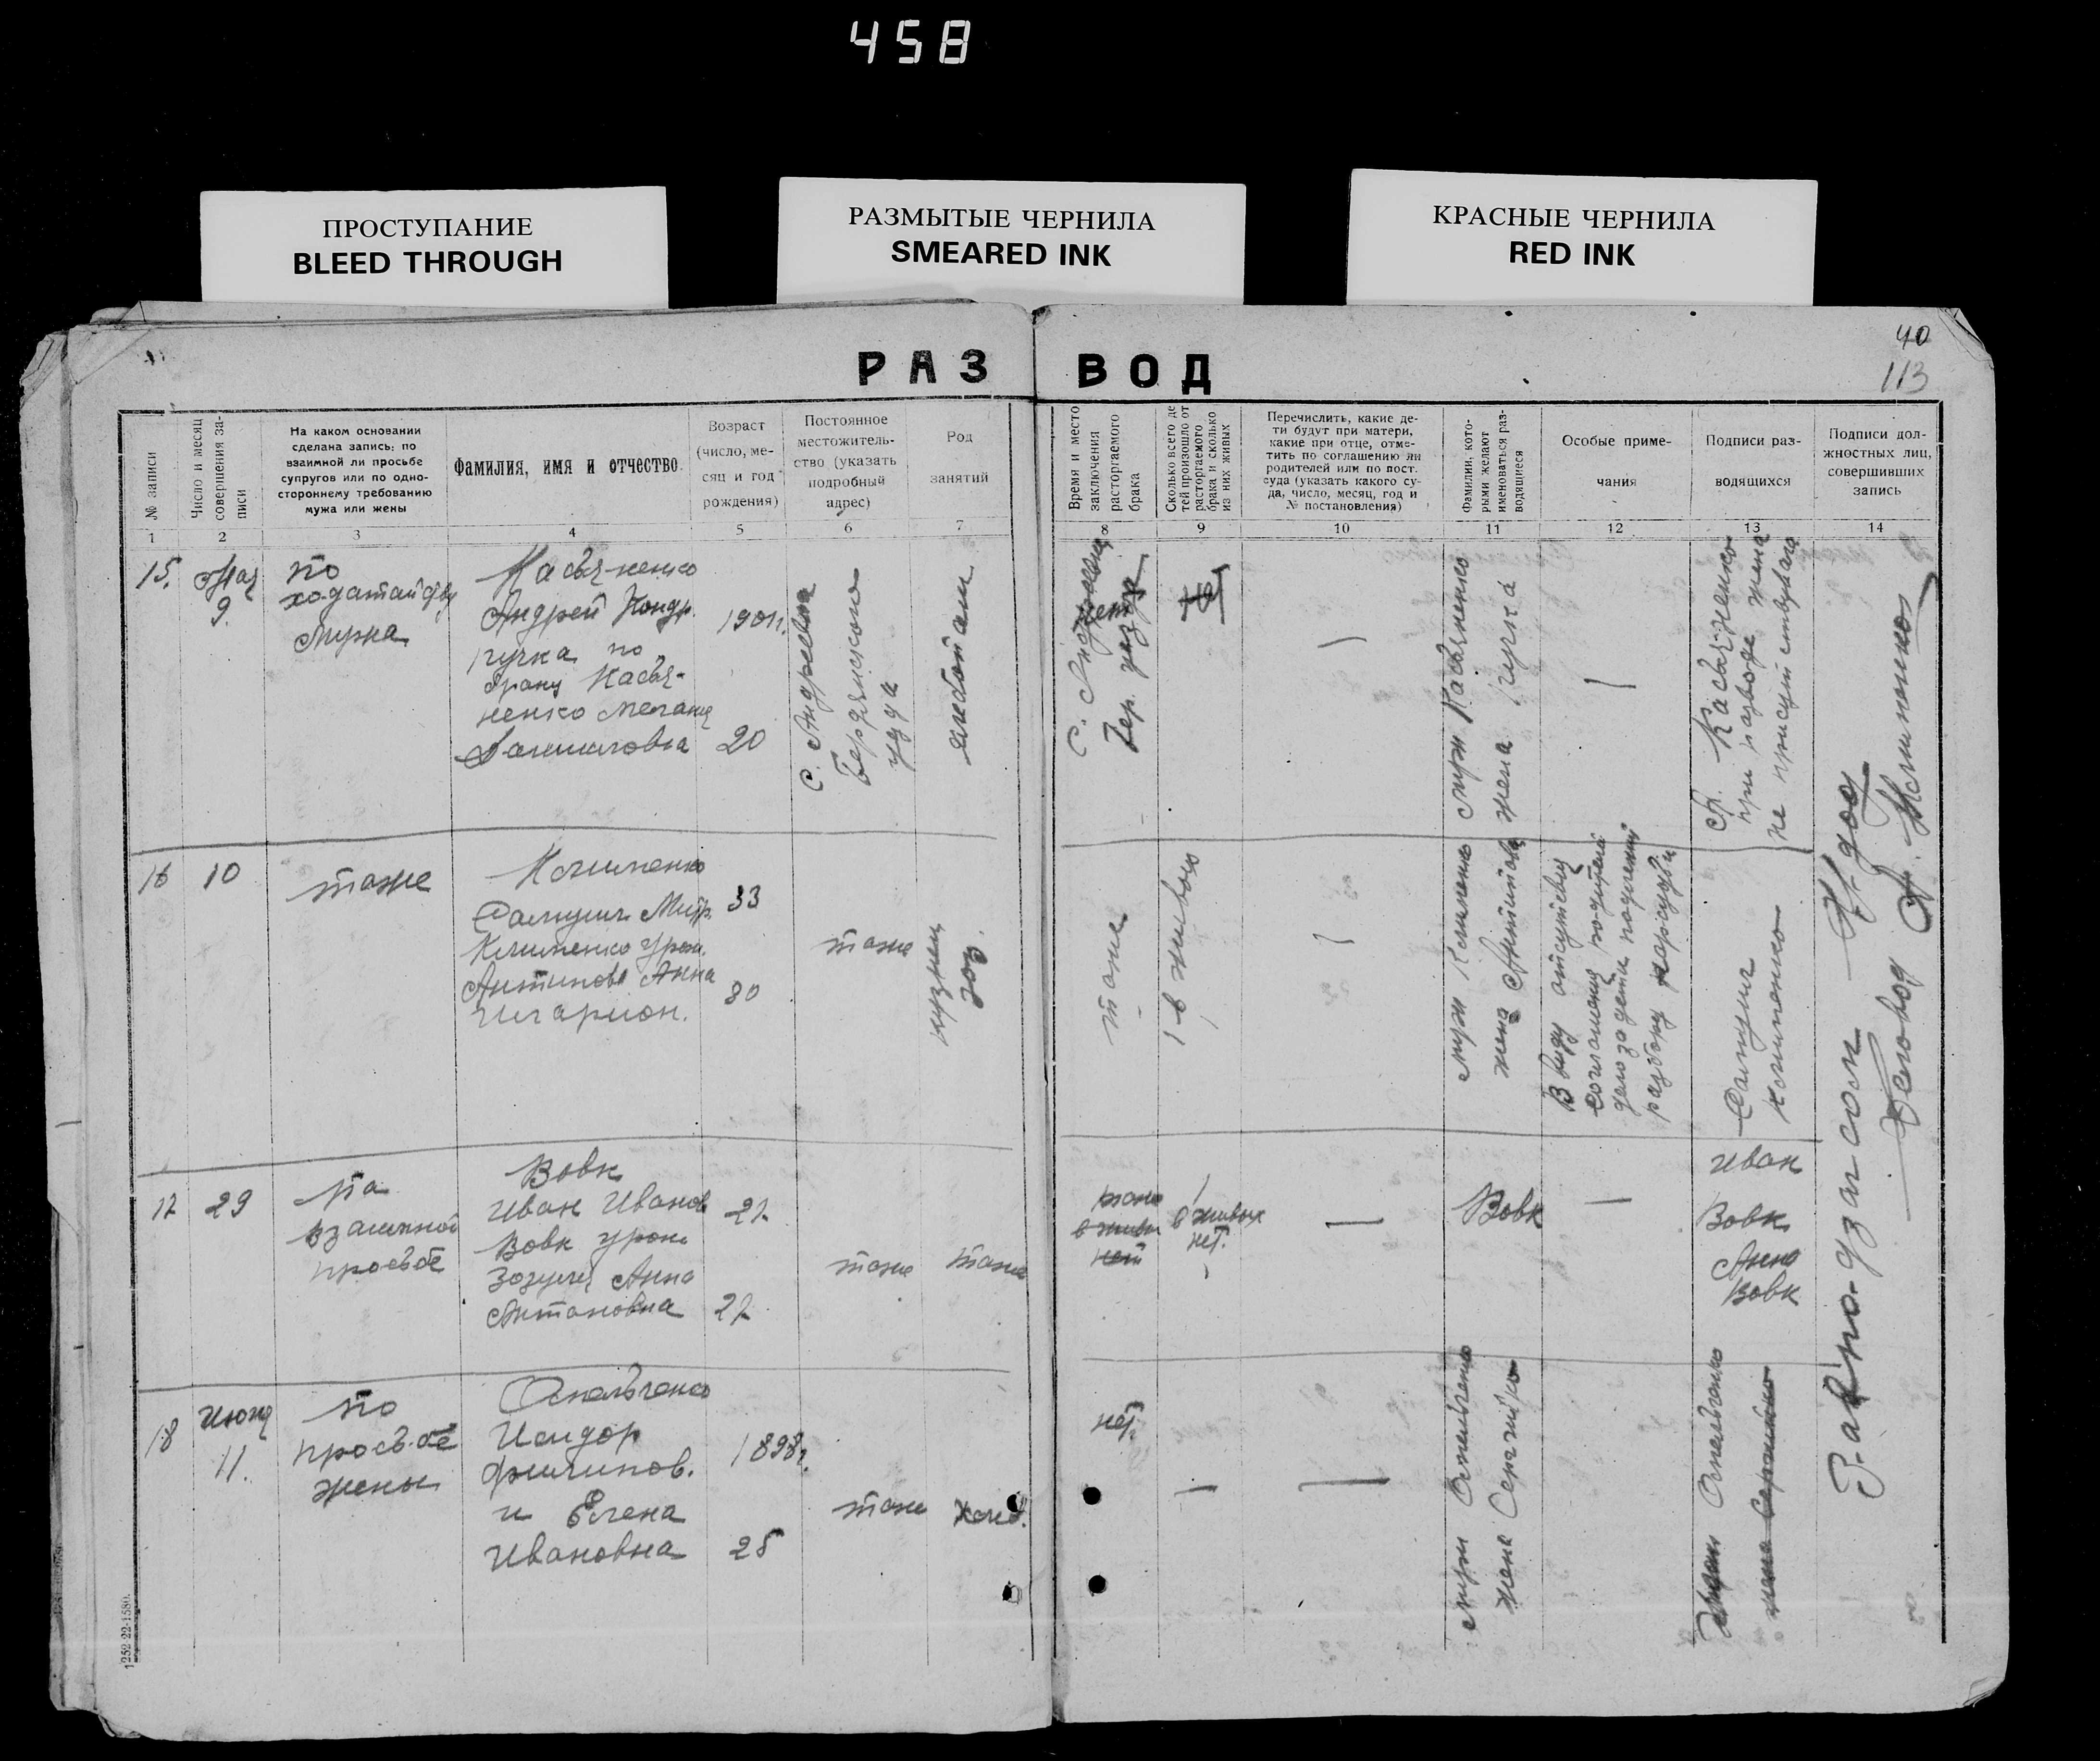 458
ПРОСТУПАНИЕ
BLEED THROUGH
РАЗМЫТЫЕ ЧЕРНИЛА
SMEARED INK
КРАСНЫЕ ЧЕРНИЛА
RED INK
40
113
РАЗ ВОД
№ записи
Число и месяц
совершения за-
писи
На каком основании
сделана запись: по
взаимной ли просьбе
супругов или по одно-
стороннему требованию
мужа или жены
Фамилия, имя и отчество
Возраст
(число, ме-
сяц и год
рождения)
Постоянное
местожитель-
ство (указать
подробный
адрес)
Род
занятий
Время и место
заключения
расторгаемого
брака
Сколько всего де
тей произошло от
расторгаемого
брака и сколько
из них живых
Перечислить, какие де-
ти будут при матери,
какие при отце, отме-
тить по соглашению ли
родителей или по пост.
суда (указать какого су-
да, число, месяц, год и
№ постановления)
Фамилии, кото-
рыми желают
именоваться раз-
водящиеся
Особые приме-
чания
Подписи раз-
водящихся
Подписи дол-
жностных лиц,
совершивших
запись
1 2 3 4 5 6 7 8 9 10 11 12 13 14
15.
Мая
9.
по
ходатайству
Мужа
Касьяненко
Андрей Кондр.
по
браку Касья-
ненко Мелания
Даниловна
1901г.
20
с. Андреевка
Бердянского
уезда
хлебопаш.
с. Андреевка
Бер. уезда
нет
муж Касьяненко
жена
Касьяненко
при разводе жена
не присутствовала
16
10
тоже
Клименко
Самуил Митр.
Клименко урож.
Антипова Анна
Иларион.
33
30
тоже
кузнец
тоже
1 в живых
муж Клименко
жена Антипова
В виду отсутствия
соглашения родителей
дело за дети подлежит
разбору нарсудьи
Самуил
Клименко
17
29
па
взаимной
просьбе
Вовк
Иван Иванов
Вовк урож.
Зозуля Анна
Антоновна
27
27
тоже
тоже
тоже
в живых
нет
1
в живых
нет.
Вовк
Иван
Вовк
Анна
Вовк
18
Июня
11.
по
просьбе
жены
Омельченко
Исидор
Филипов.
и Елена
Ивановна
1898г.
25
тоже
хлеб.
нет.
муж Омельченко
жена Сергийко
Омельченко
жена Сергийко
Зав. подзагсом
Делопод
А. Клименко
1252-22-1580.